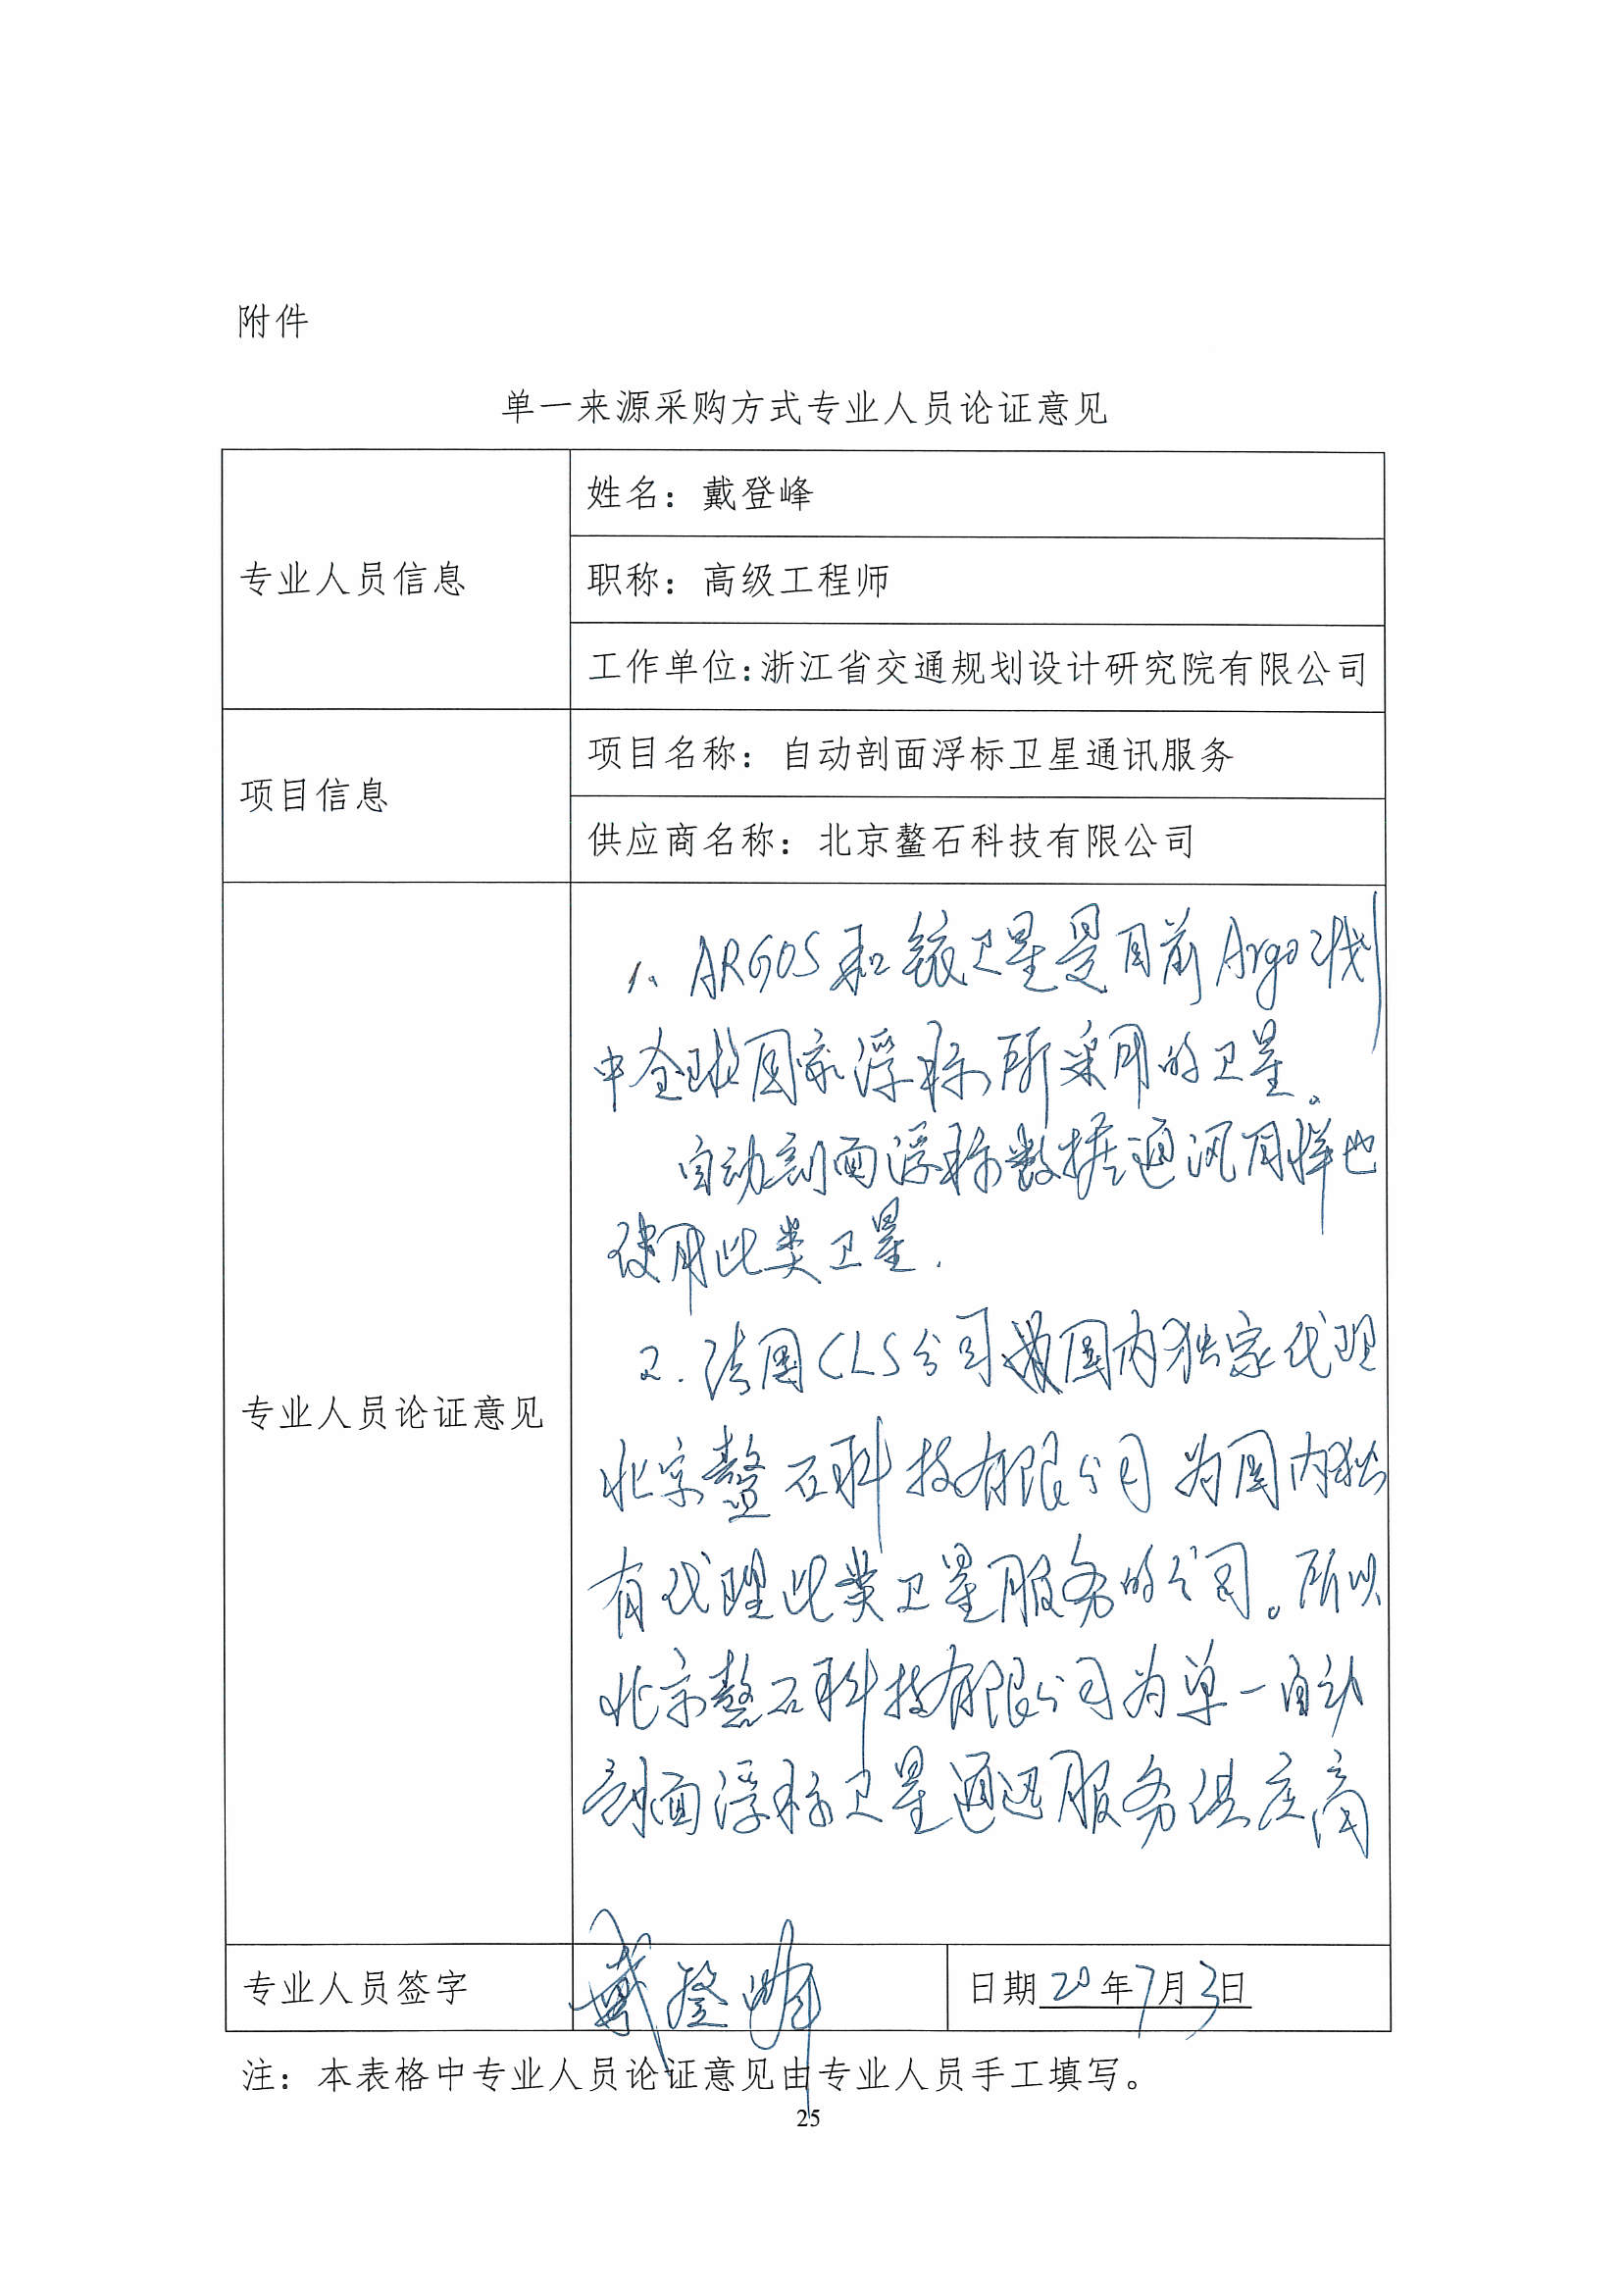 附件
单一来源采购方式专业人员论证意见
专业人员信息
姓名：戴登峰
职称：高级工程师
工作单位：浙江省交通规划设计研究院有限公司
项目信息
项目名称：自动剖面浮标卫星通讯服务
供应商名称：北京鳌石科技有限公司
专业人员论证意见
1、ARGOS和铱卫星是目前Argo计划
中全球国家浮标所采用的卫星。
自动剖面浮标数据通讯同样也
使用此类卫星.
2.法国CLS公司国内独家代理
北京鳌石科技有限公司为国内独
有代理此类卫星服务的公司。所以
北京鳌石科技有限公司为单一自动
剖面浮标卫星通迅服务供应商
专业人员签字
戴登峰
日期20年7月3日
注：本表格中专业人员论证意见由专业人员手工填写。
25